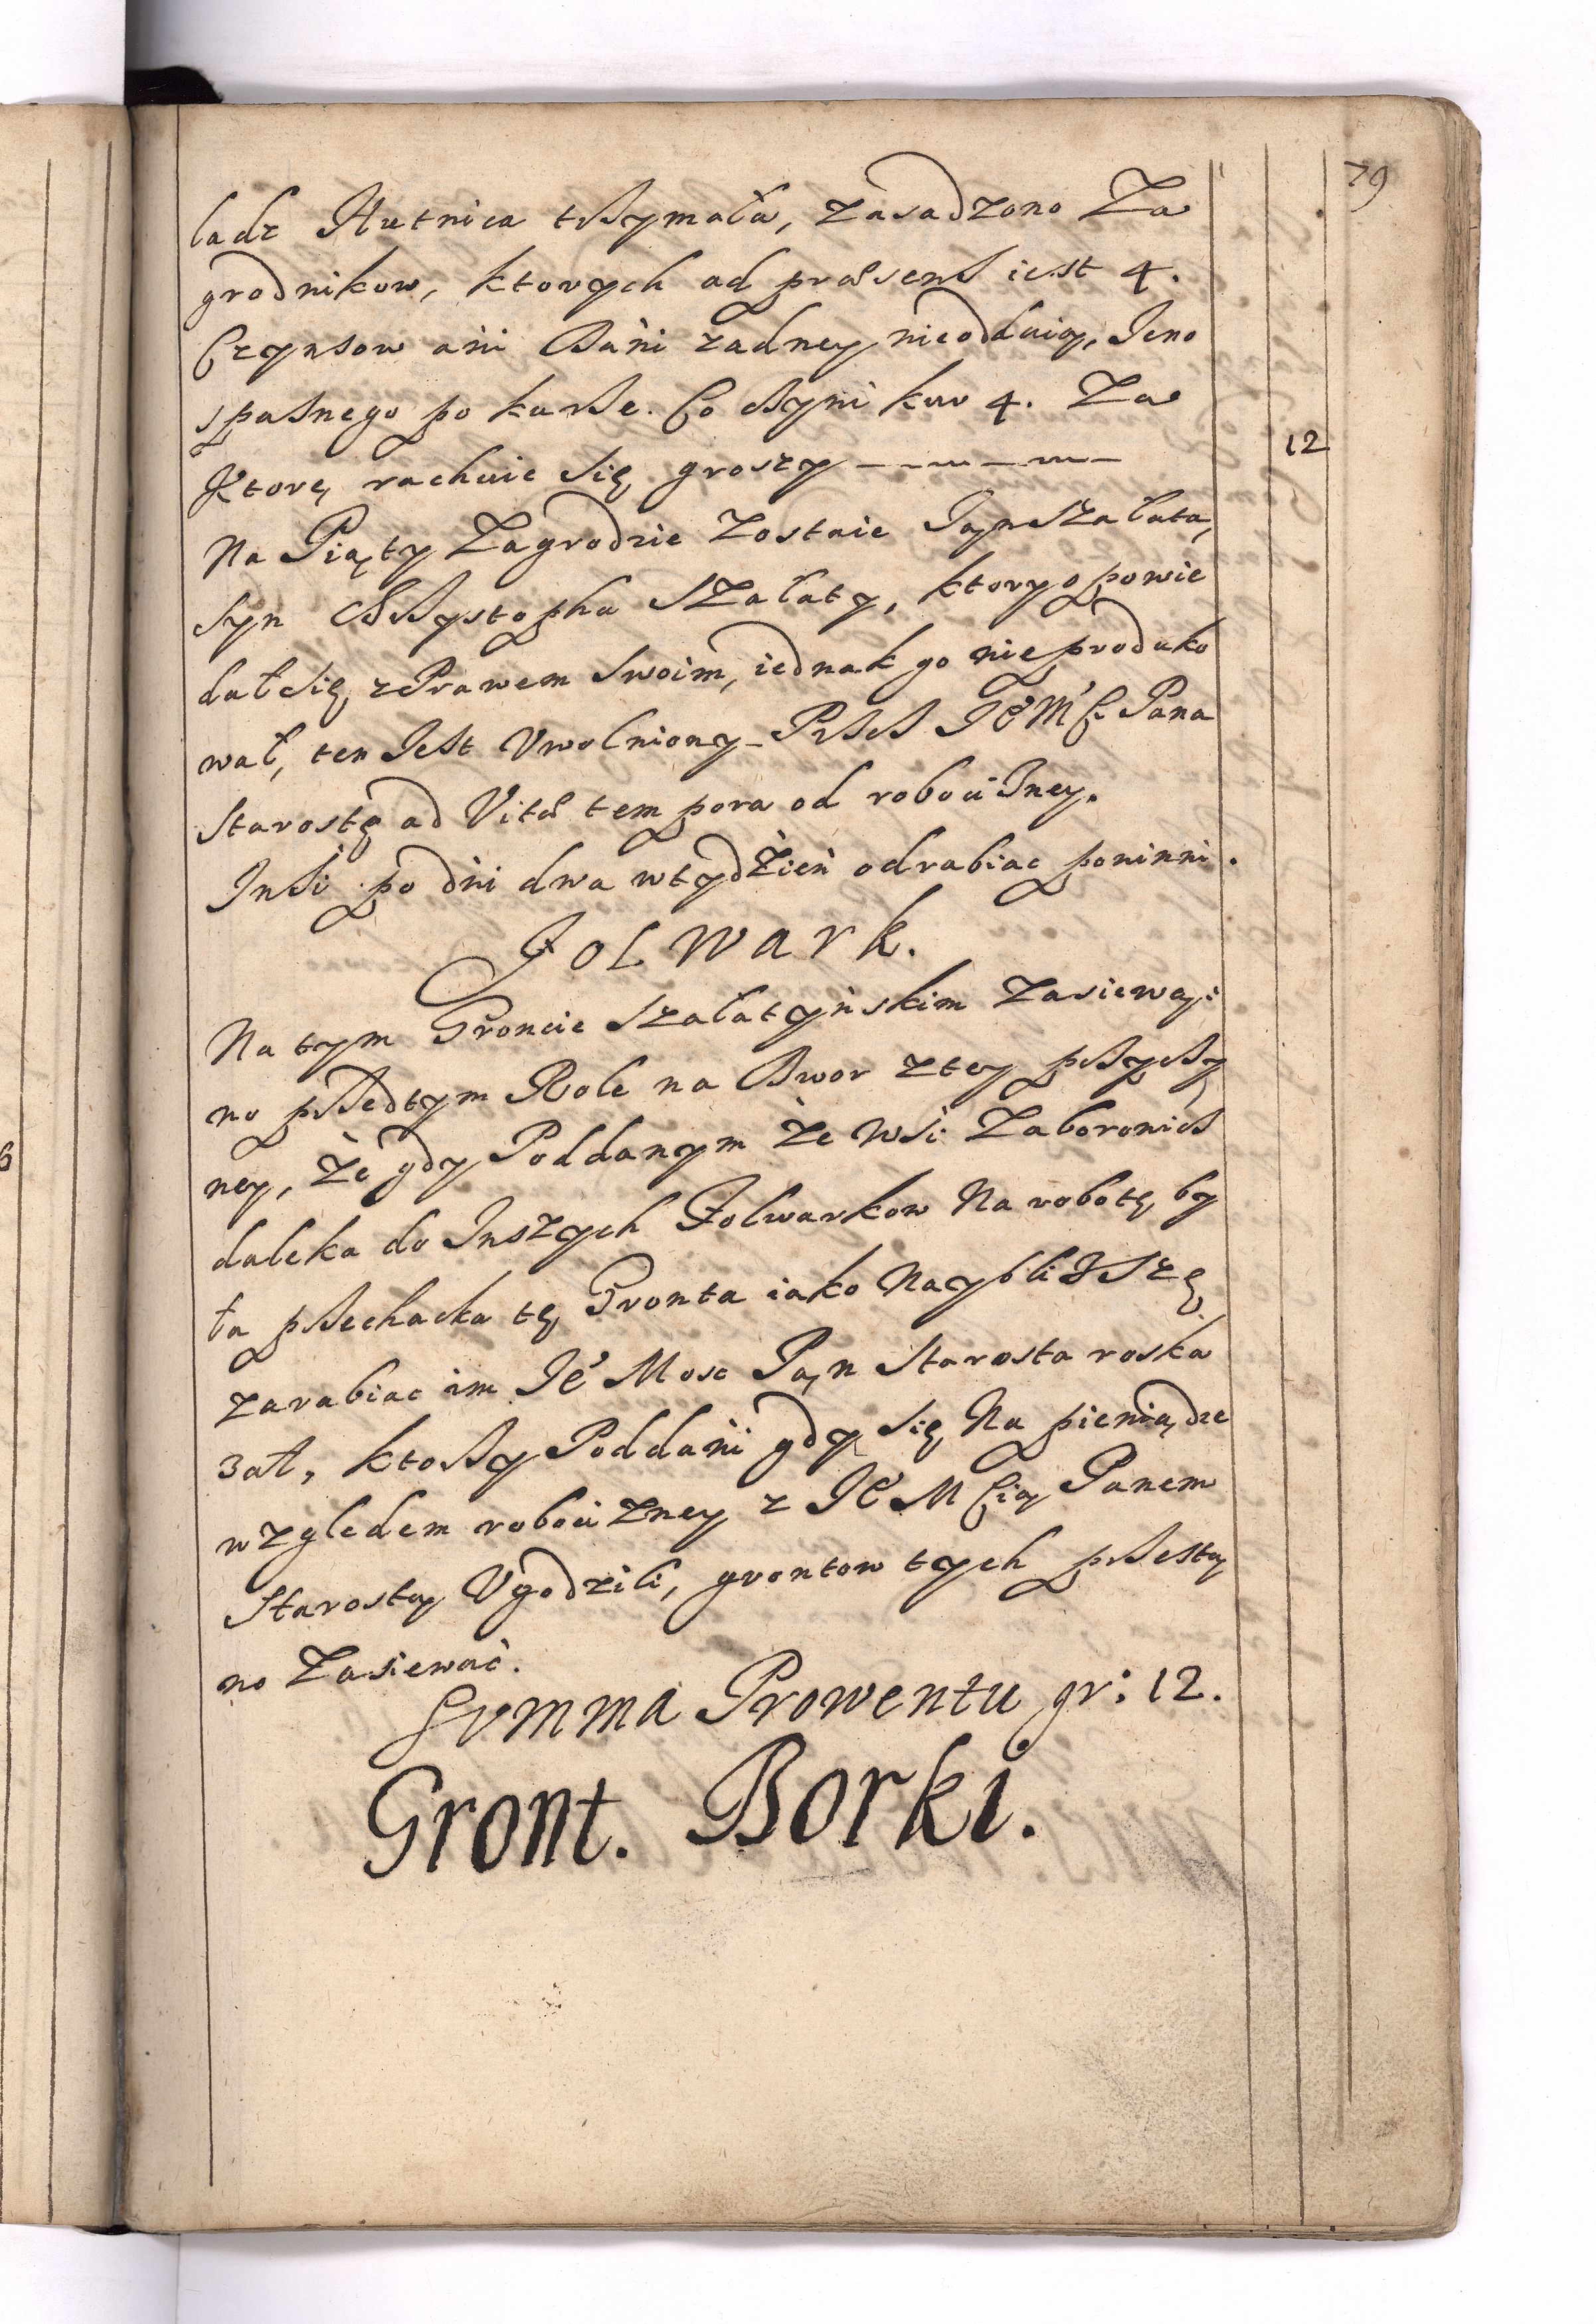 79
ladz Hutnica trzymała, zasadzono Za
grodnikow, ktorych ad præsens iest 4.
Czynszow ani Dani zadney nieoddaią, Jeno
spasnego po kurze. Co czyni kur 4. Za
Ktorę rachuie się groszy
12
Na Piąty Zagrodzie Zostaie Jan Szałata,
syn Chrzystopha Szałaty, ktory opowie
dał się z Prawem Swoim, iednak go nie produko
wał, ten Jest Uwolniony Przez Je Mci Pana
Starostę ad Vitæ tempora od robocizney.
Inszi po dni dwa w tydzień odrabiac powinni.
Folwark.
Na tym Groncie Szałatyńskim Zasiewa:
no przedtym Role na Dwor z tey przyczy
ney, że gdy Poddanym Ze Wsi Zaborowiec
daleka do Inszych Folwarkow Na robotę by
ła przechacka tę Gronta iako Naybliższę
zarabiac im Je Mosc Pan Starosta roska
zał, ktorzy Poddani gdy się Na pieniądze
względem robocizney z Je M Cią Panem
Starostą Ugodzili, grontow tych przesta
no Zasiewać.
Summa Prowentu gr: 12.
Gront. Borki.